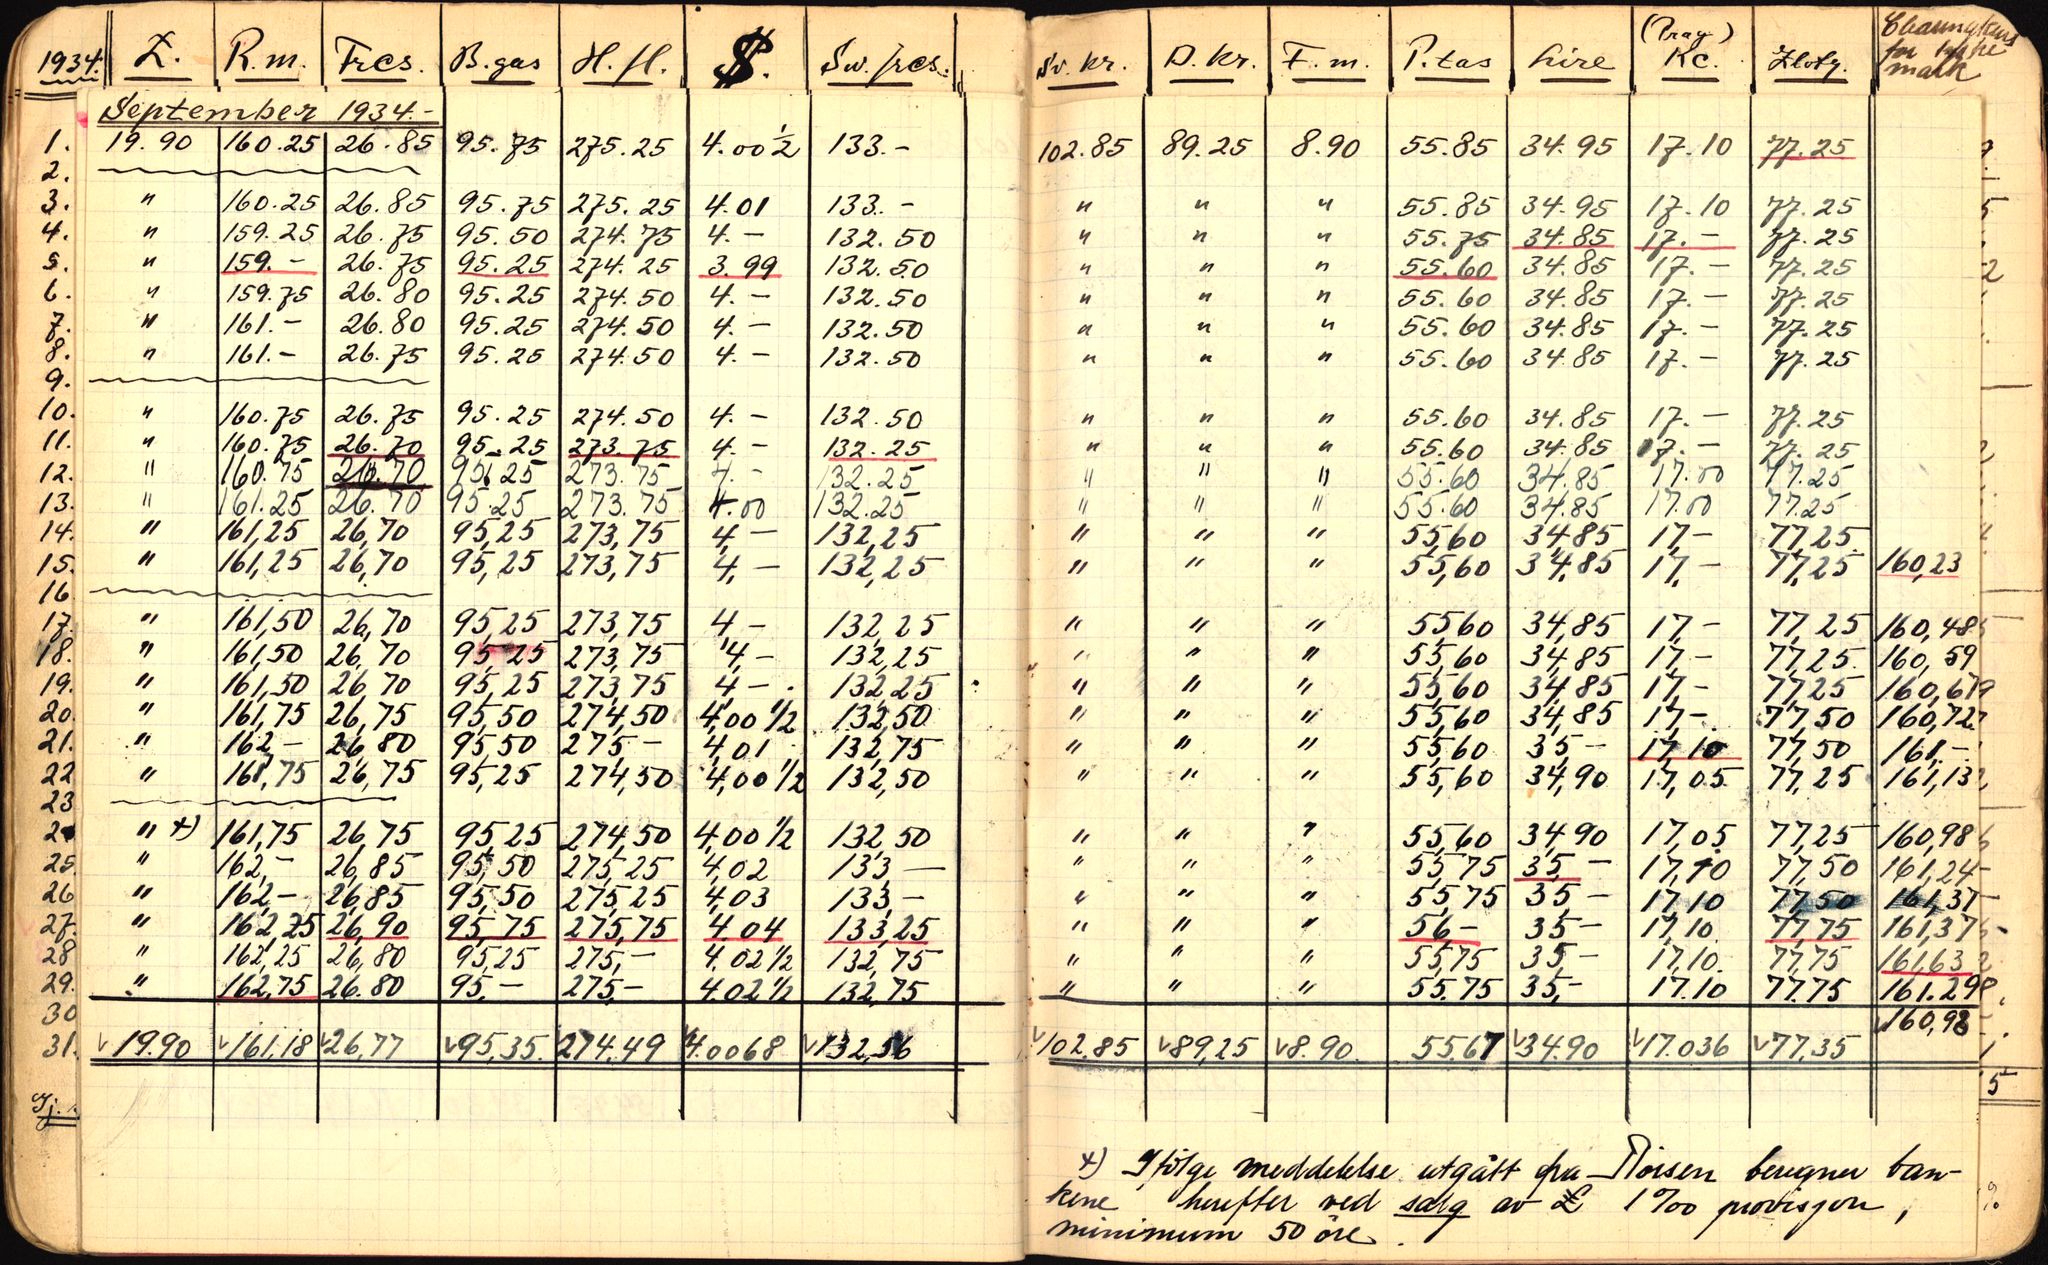 1934. £. R.m. Frcs. B.gas H.fl. $. Sw.frcs. Sv.kr. D.Kr. F.m. P.tas Lire (Prag) Kc. Zloty. Clearingkurs for tyske mark
September 1934.-
1. 19.90 160.25 26.85 95.75 275.25 4.00 1/2 133.- 102.85 89.25 8.90 55.85 34.95 17.10 77.25
2.
3. " 160.25 26.85 95.75 275.25 4.01 133.- " " " 55.85 34.95 17.10 77.25
4. " 159.25 26.75 95.50 274.75 4.- 132.50 " " " 55.75 34.85 17.- 77.25
5. " 159.- 26.75 95.25 274.25 3.99 132.50 " " " 55.60 34.85 17.- 77.25
6. " 159.75 26.80 95.25 274.50 4.- 132.50 " " " 55.60 34.85 17.- 77.25
7. " 161.- 26.80 95.25 274.50 4.- 132.50 " " " 55.60 34.85 17.- 77.25
8. " 161.- 26.75 95.25 274.50 4.- 132.50 " " " 55.60 34.85 17.- 77.25
9.
10. " 160.75 26.75 95.25 274.50 4.- 132.50 " " " 55.60 34.85 17.- 77.25
11. " 160.75 26.70 95.25 273.75 4.- 132.25 " " " 55.60 34.85 17.- 77.25
12. " 160.75 26.70 95.25 273.75 4.- 132.25 " " " 55.60 34.85 17.00 77.25
13. " 161.25 26.70 95.25 273.75 4.00 132.25 " " " 55.60 34.85 17.00 77.25
14. " 161,25 26,70 95,25 273,75 4,- 132,25 " " " 55,60 34,85 17,- 77,25
15. " 161,25 26,70 95,25 273,75 4,- 132,25 " " " 55,60 34,85 17,- 77,25 160,23
16
17. " 161,50 26,70 95,25 273,75 4,- 132,25 " " " 55,60 34,85 17,- 77,25 160,485
18. " 161,50 26,70 95,25 273,75 4,- 132,25 " " " 55,60 34,85 17,- 77,25 160,59
19. " 161,50 26,70 95,25 273,75 4,- 132,25 " " " 55,60 34,85 17,- 77,25 160,679
20. " 161,75 26,75 95,50 274,50 4,00 1/2 132,50 " " " 55,60 34,85 17,- 77,50 160,727
21. " 162,- 26,80 95,50 275,- 4,01 132,75 " " " 55,60 35,- 17,10 77,50 161,-
22 " 161,75 26,75 95,25 274,50 4,00 1/2 132,50 " " " 55,60 34,90 17,05 77,25 161,132
23
24 " +) 161,75 26,75 95,25 274,50 4,00 1/2 132,50 " " " 55,60 34,90 17,05 77,25 160,98
25. " 162,- 26,85 95,50 275,25 4,02 133,- " " " 55,75 35,- 17,10 77,50 161,24
26 " 162,- 26,85 95,50 275,25 4,03 133,- " " " 55,75 35,- 17,10 77,50 161,37
27. " 162,25 26,90 95,75 275,75 4,04 133,25 " " " 56,- 35,- 17,10 77,75 161,375
28 " 162,25 26,80 95,25 275,- 4,02 1/2 132,75 " " " 55,75 35,- 17,10 77,75 161,632
29. " 162,75 26.80 95,- 275,- 4.02 1/2 132,75 " " " 55.75 35,- 17.10 77.75 161.298
30 160,98
31. 19.90 161.18 26,77 95,35 274.49 4.0068 132,56 102.85 89,25 8.90 55,67 34.90 17.036 77,35
Gj.
+) Ifölge meddelelse utgått fra Börsen beregner ban-
kene herefter ved salg av £ 1‰ provisjon,
minimum 50 öre.